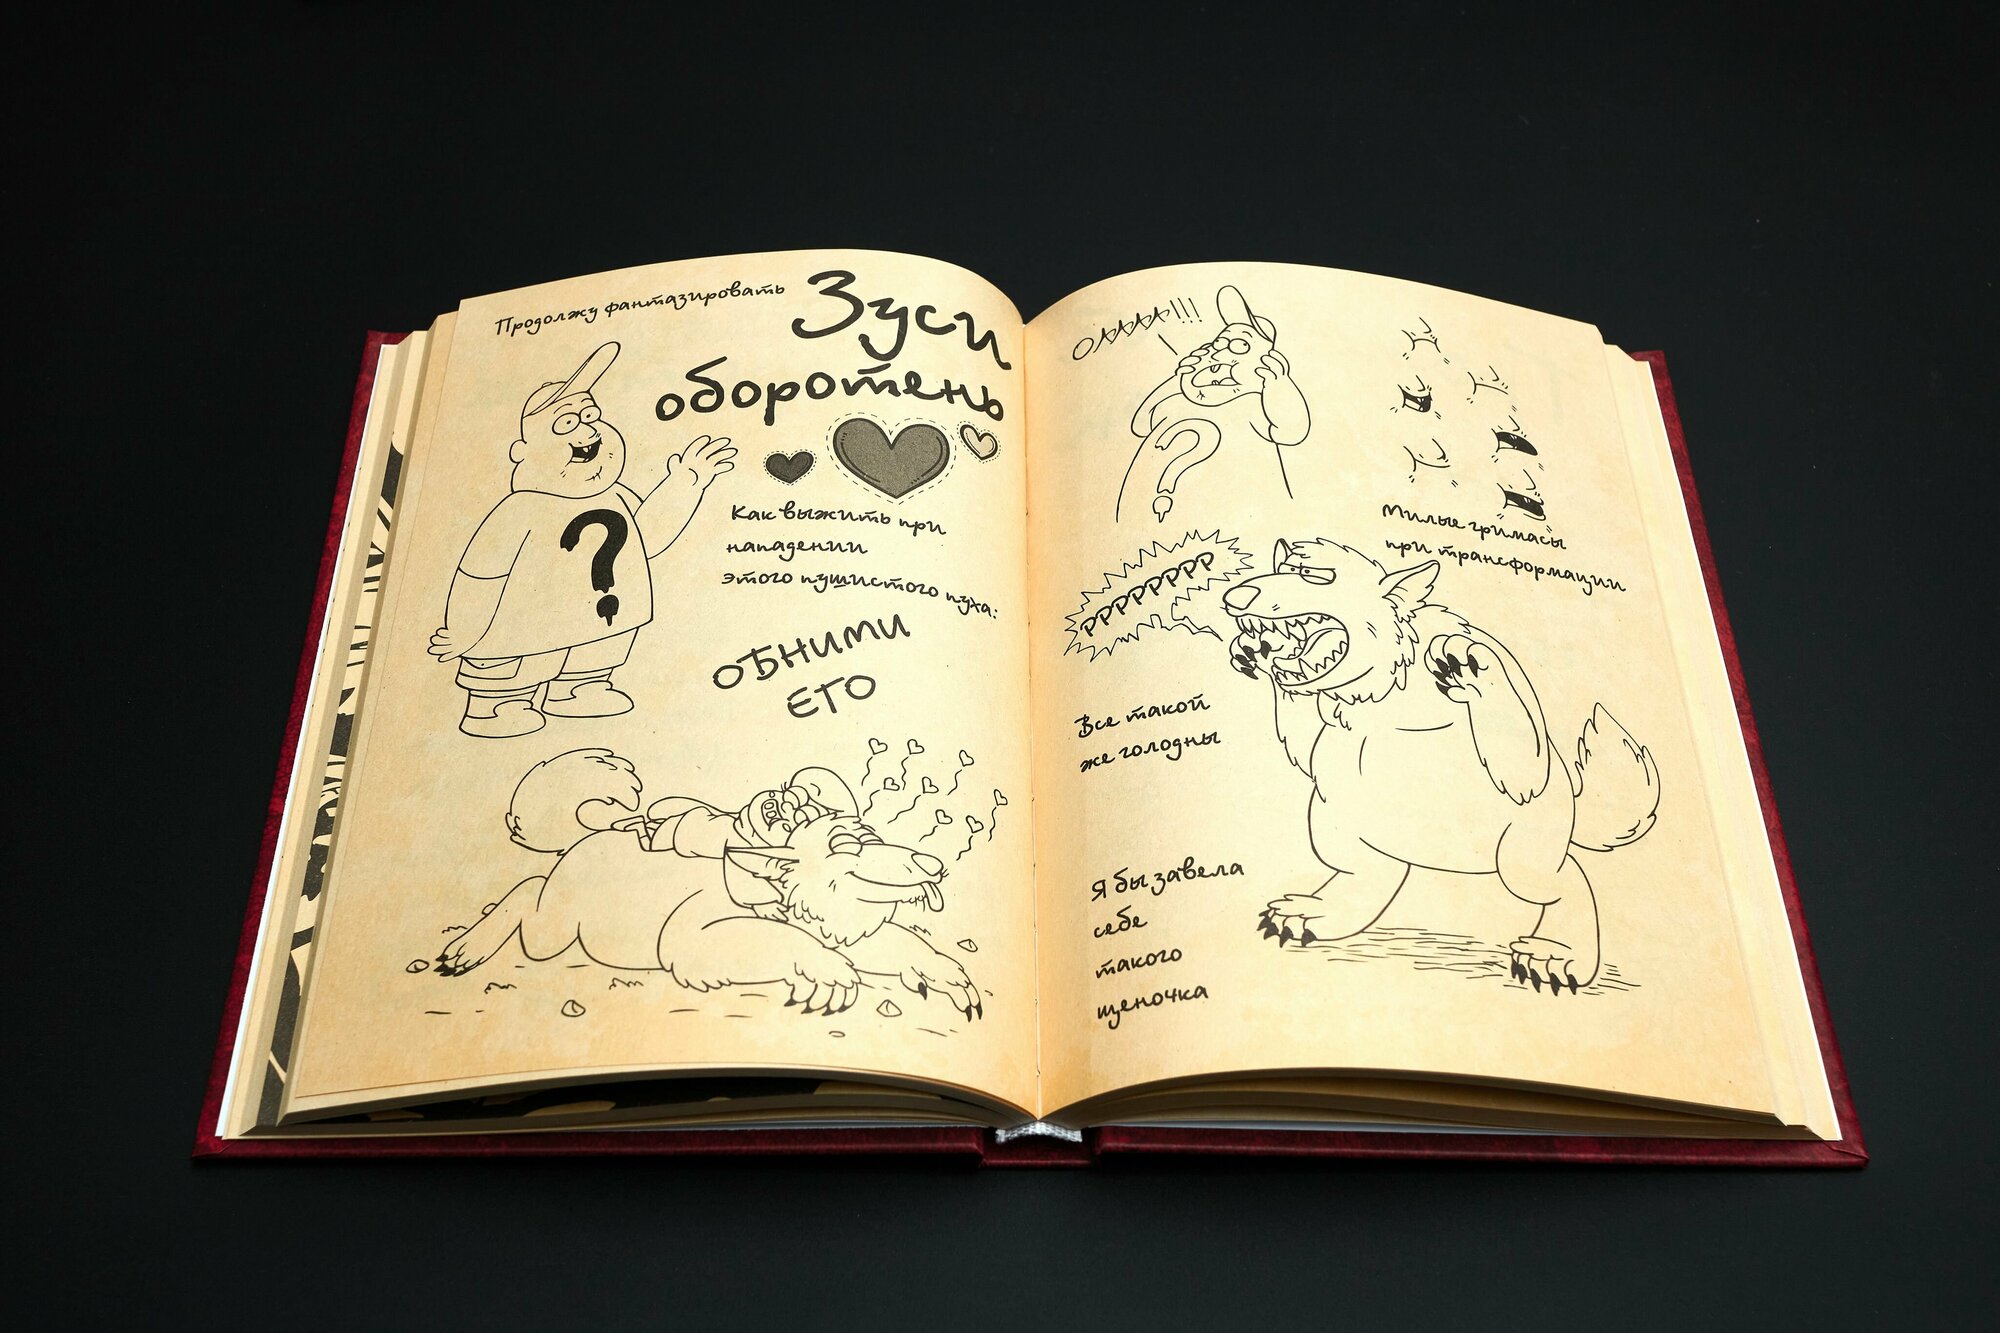 Продолжу фантазировать
Зуси
оборотень
Как выжить при
нападении
этого пушистого пуха:
ОБНИМИ
ЕГО
ОАААА!!!
Милые гримасы
при трансформации
РРРРРРРР
Все такой
же голодны
Я бы завела
себе
такого
щеночка